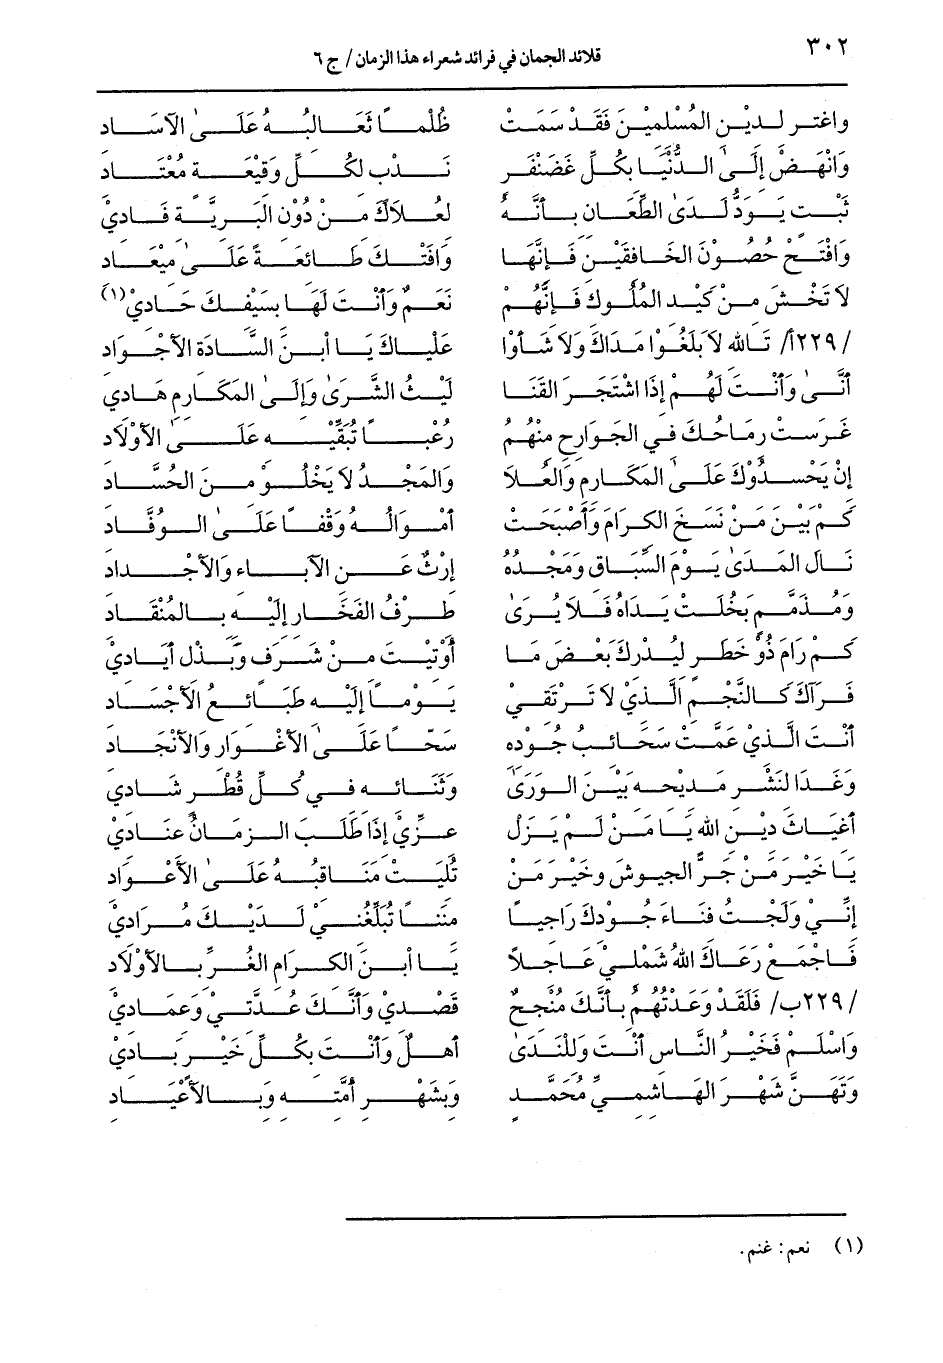 ٣٠٢
قلائد الجمان في فرائد شعراء هذا الزمان / ج ٦
واغتر لدين المُسْلمِيْنَ فَقَدْ سَمَتْ ظُلْمَاً ثَعَالِبُهُ عَلَىٰ الآسَادِ
وَانْهَضْ إِلَىٰ الدُّنْيَا بِكُلِّ غَضَنْفَرٍ نَدْبٍ لِكُلِّ وَقِيْعَةٍ مُعْتَادِ
ثَبْتٍ يَوَدُّ لَدَىٰ الطِّعَانِ بِأَنَّهُ لِعُلاَكَ مِنْ دُوْنِ البَرِيَّةِ فَادِيْ
وَافْتَحْ حُصُوْنَ الخَافِقَيْنِ فَإِنَّهَا وَافَتْكَ طَائِعَةً عَلَىٰ مِيْعَادِ
لاَ تَخْشَ مِنْ كَيْدِ المُلُوكِ فَإِنَّهُمْ نَعَمٌ وَأَنْتَ لَهَا بِسَيْفِكَ حَادِيْ(١)
/٢٢٩أ/ تَاللهِ لاَ بَلَغُوْا مَدَاكَ وَلاَ شَأَوْا عَلْيَاكَ يَا أَبْنَ السَّادَةِ الأَجْوَادِ
أَنَّىٰ وَأَنْتَ لَهُمْ إِذَا اشْتَجَرَ القَنَا لَيْثُ الشَّرَىٰ وَإِلَىٰ المَكَارِمِ هَادِي
غَرَسَتْ رِمَاحُكَ فِي الجَوَارِحِ مِنْهُمُ رُعْبَاً تُبَقِّيْهِ عَلَىٰ الأَوْلاَدِ
إِنْ يَحْسُدُوْكَ عَلَىٰ المَكَارِمِ وَالعُلاَ وَالمَجْدُ لاَ يَخْلُوْ مِنَ الحُسَّادِ
كَمْ بَيْنَ مَنْ نَسَخَ الكِرَامَ وَأَصْبَحَتْ أَمْوَالُهُ وَقْفَاً عَلَىٰ الوُفَّادِ
نَالَ المَدَىٰ يَوْمَ السِّبَاقِ وَمَجْدُهُ إِرْثٌ عَنِ الآبَاءِ وَالأَجْدَادِ
وَمُذَمَّمٍ بَخُلَتْ يَدَاهُ فَلاَ يُرَىٰ طَرْفُ الفَخَارِ إِلَيْهِ بِالمُنْقَادِ
كَمْ رَامَ ذُوْ خَطَرٍ لِيُدْرِكَ بَعْضَ مَا أُوْتِيْتَ مِنْ شَرَفٍ وَبَذْلِ أَيَادِيْ
فَرَآكَ كَالنَّجْمِ الَّذِيْ لاَ تَرْتَقِيْ يَوْمَاً إِلَيْهِ طَبَائِعُ الأَجْسَادِ
أَنْتَ الَّذِيْ عَمَّتْ سَحَائِبُ جُوْدِهِ سَحَّاً عَلَىٰ الأَغْوَارِ وَالأَنْجَادِ
وَغَدَا لِنَشْرِ مَدِيْحِهِ بَيْنَ الوَرَىٰ وَثَنَائِهِ فِي كُلِّ قُطْرٍ شَادِي
أَغِيَاثَ دِيْنِ اللهِ يَا مَنْ لَمْ يَزَلْ عِزِّيْ إِذَا طَلَبَ الزَمَانُ عِنَادِيْ
يَا خَيْرَ مَنْ جَرَّ الجِيوشَ وَخَيْرَ مَنْ تُلِيَتْ مَنَاقِبُهُ عَلَىٰ الأَعْوَادِ
إِنِّيْ وَلَجْتُ فِنَاءَ جُوْدِكَ رَاجِيَاً مِنَنَاً تُبَلِّغُنِيْ لَدَيْكَ مُرَادِيْ
فَاجْمَعْ رَعَاكَ اللهُ شَمْلِيَ عَاجِلاً يَا أَبْنَ الكِرَامِ الغُرِّ بِالأَوْلاَدِ
/٢٢٩ب/ فَلَقَدْ وَعَدْتُهُمُ بِأَنَّكَ مُنْجِحٌ قَصْدِيْ وَأَنَّكَ عُدَّتِيْ وَعِمَادِيْ
وَاسْلَمْ فَخَيْرُ النَّاسِ أَنْتَ وَلِلنَّدَىٰ أَهْلٌ وَأَنْتَ بِكُلِّ خَيْرٍ بَادِيْ
وَتَهَنَّ شَهْرَ الهَاشِمِيِّ مُحَمَّدٍ وَبِشَهْرِ أُمَّتِهِ وَبِالأَعْيَادِ
(١) نعم: غنم.